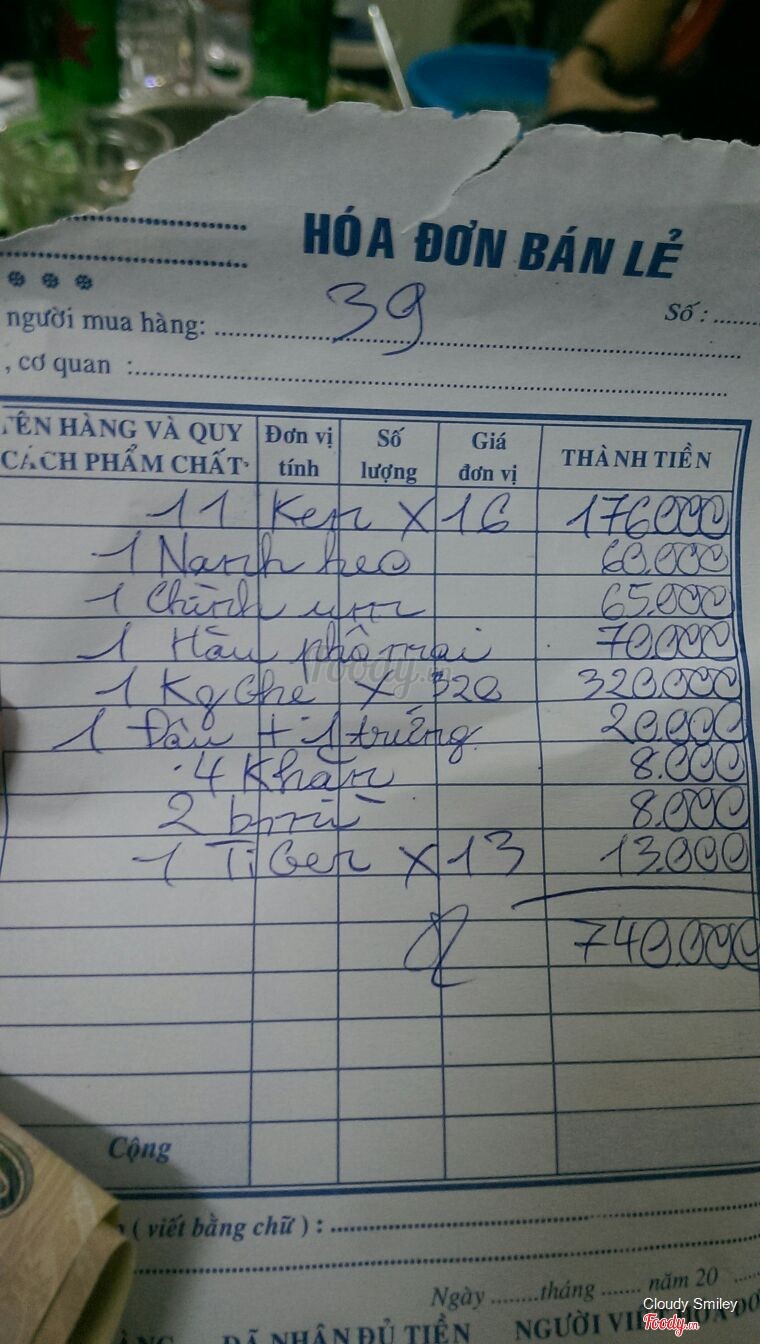 HÓA ĐƠN BÁN LẺ
người mua hàng: 39
Số :
, cơ quan :
TÊN HÀNG VÀ QUY CÁCH PHẨM CHẤT Đơn vị tính Số lượng Giá đơn vị THÀNH TIỀN
11 Ken X 16 176.000
1 Nanh heo 60.000
1 65.000
1 Hàu phô mai 70.000
1 Kg Ghẹ X 320 320.000
1 Đậu + 1 trứng 20.000
4 Khăn 8.000
2 8.000
1 TiGer X 13 13.000
740.000
Foody.vn
Cộng
( viết bằng chữ ) :
Ngày tháng năm 20
ĐÃ NHẬN ĐỦ TIỀN NGƯỜI VIẾT HÓA ĐƠ
Cloudy Smiley
Foody.vn